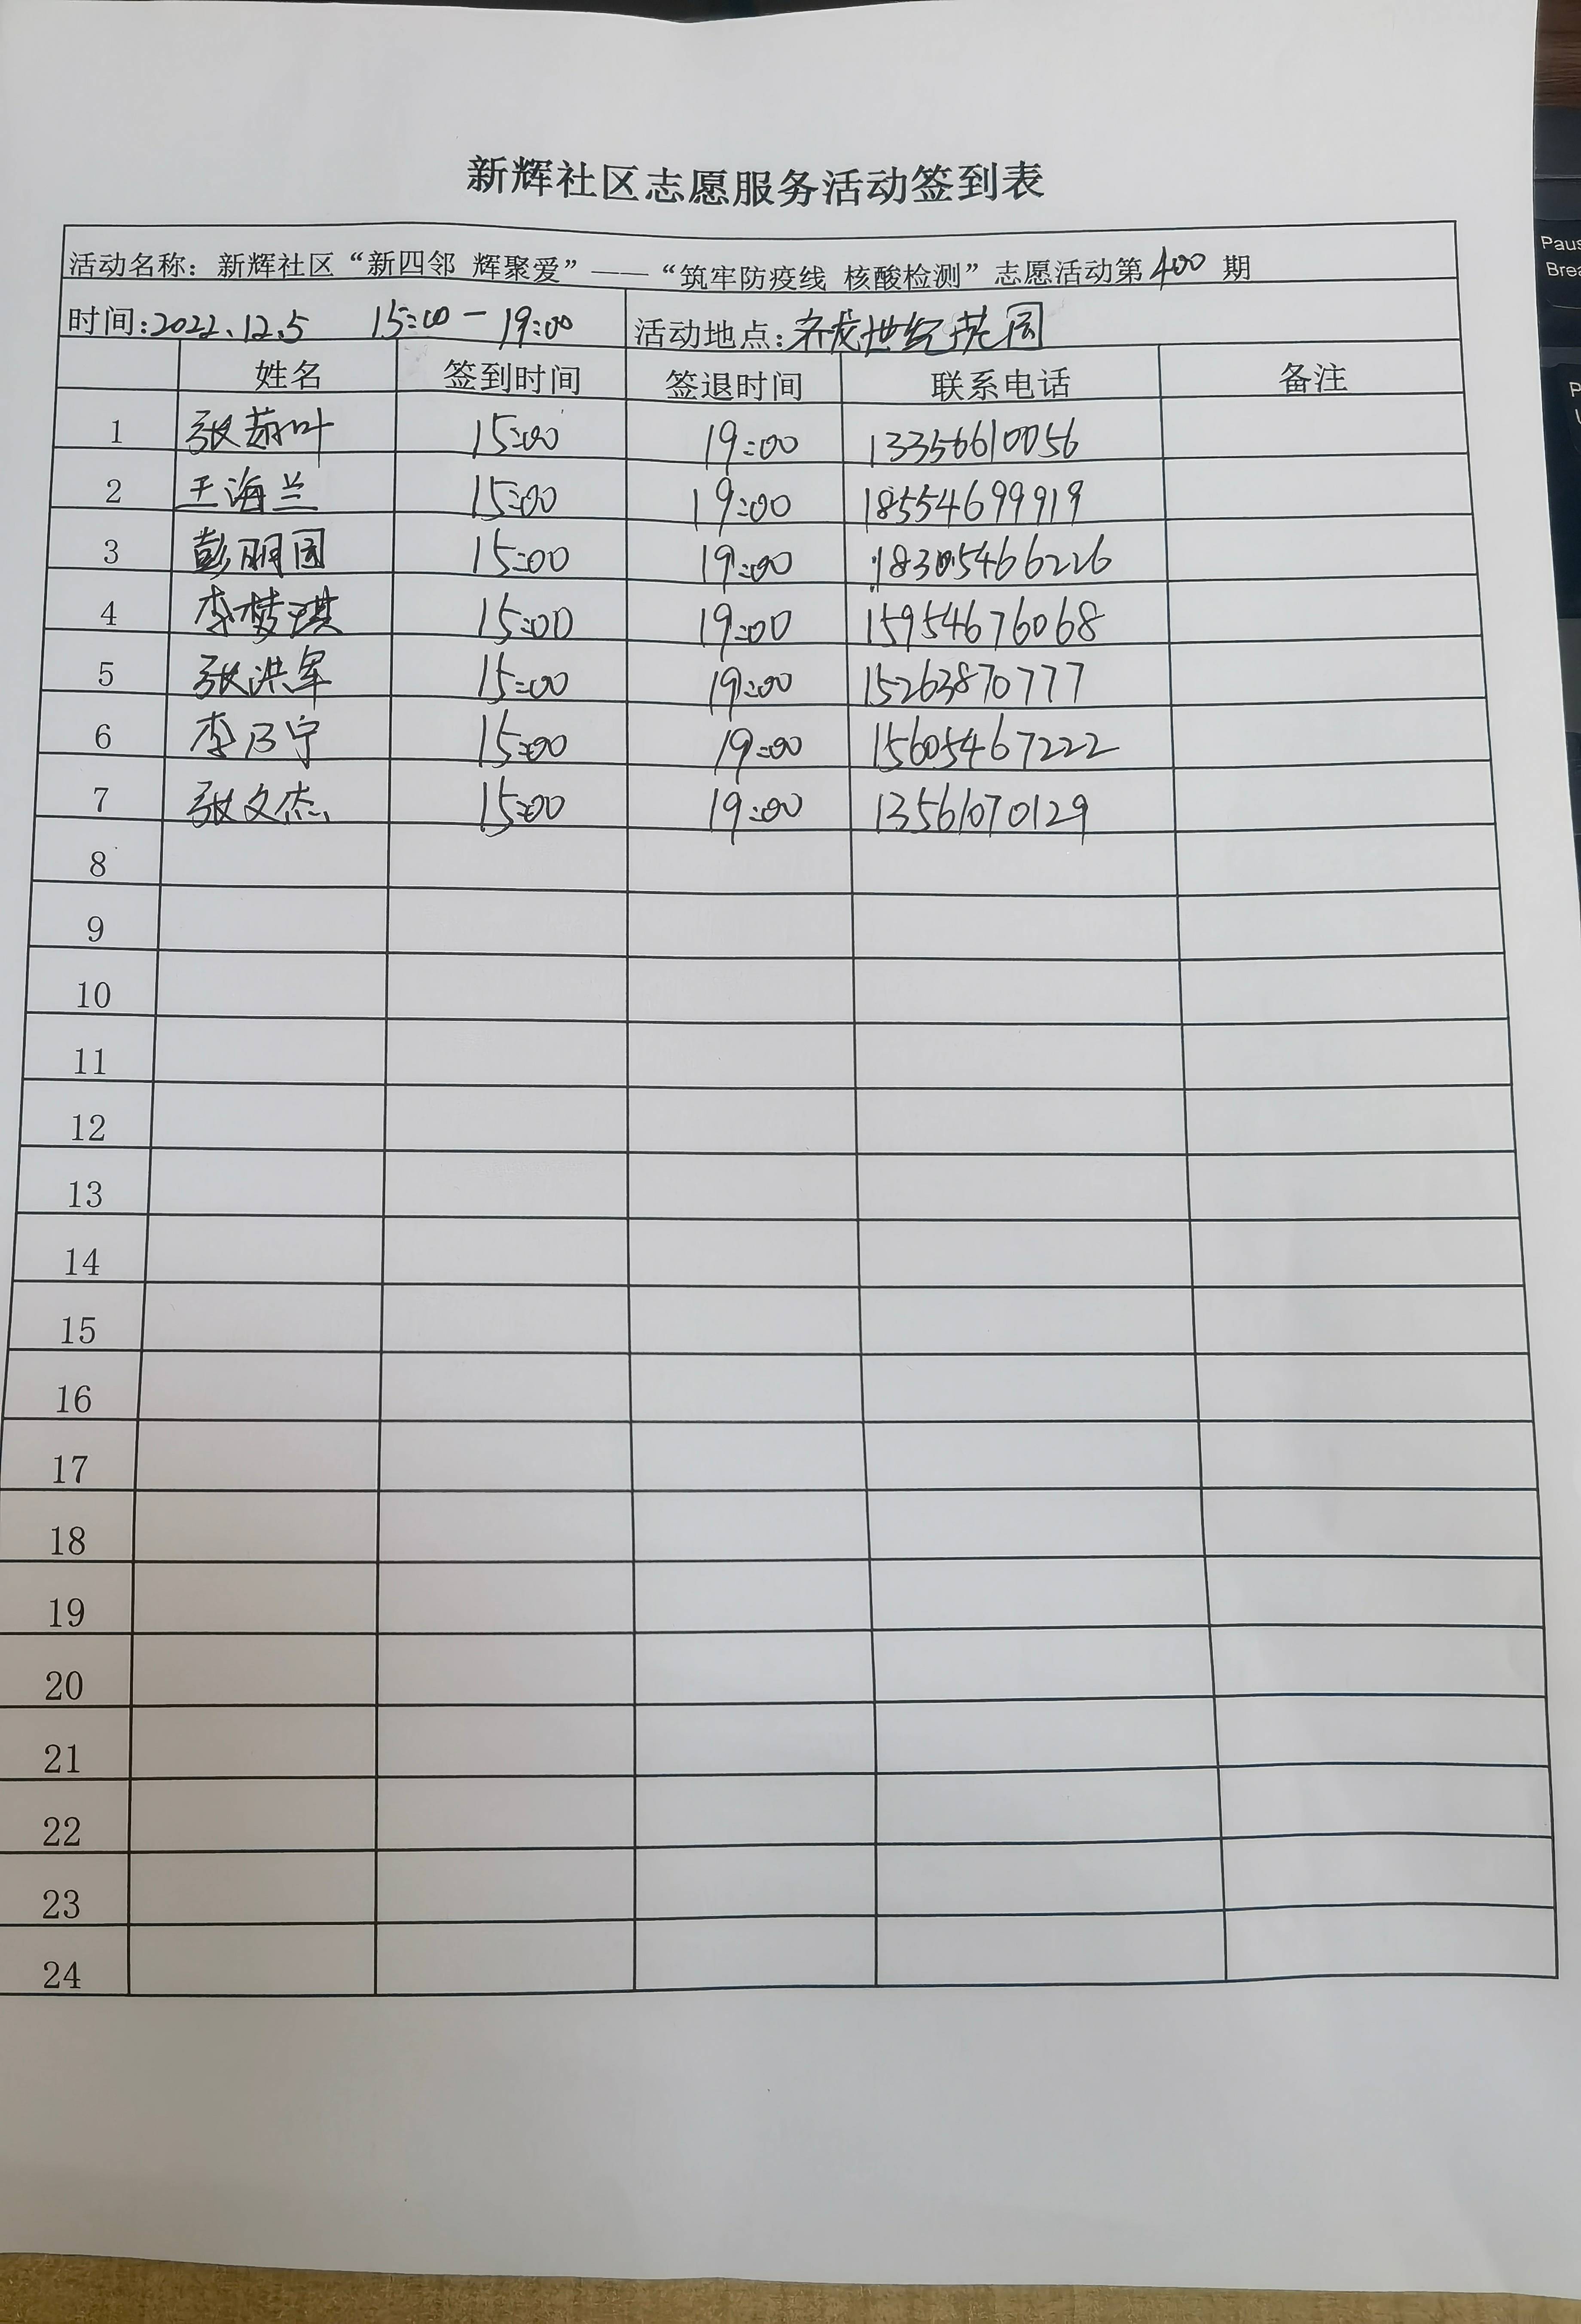 新辉社区志愿服务活动签到表
活动名称：新辉社区“新四邻 辉聚爱”——“筑牢防疫线 核酸检测”志愿活动第 400 期
时间:2022.12.5 15:00-19:00 活动地点:众成世纪花园
姓名 签到时间 签退时间 联系电话 备注
1 张 叶 15:00 19:00 13356610056
2 王海兰 15:00 19:00 18554699919
3 彭丽园 15:00 19:00 18305466226
4 李梦琪 15:00 19:00 15954676068
5 张洪军 15:00 19:00 15263870777
6 李乃宁 15:00 19:00 15605467222
7 张文杰 15:00 19:00 13561070129
8
9
10
11
12
13
14
15
16
17
18
19
20
21
22
23
24
Paus
Brea
P